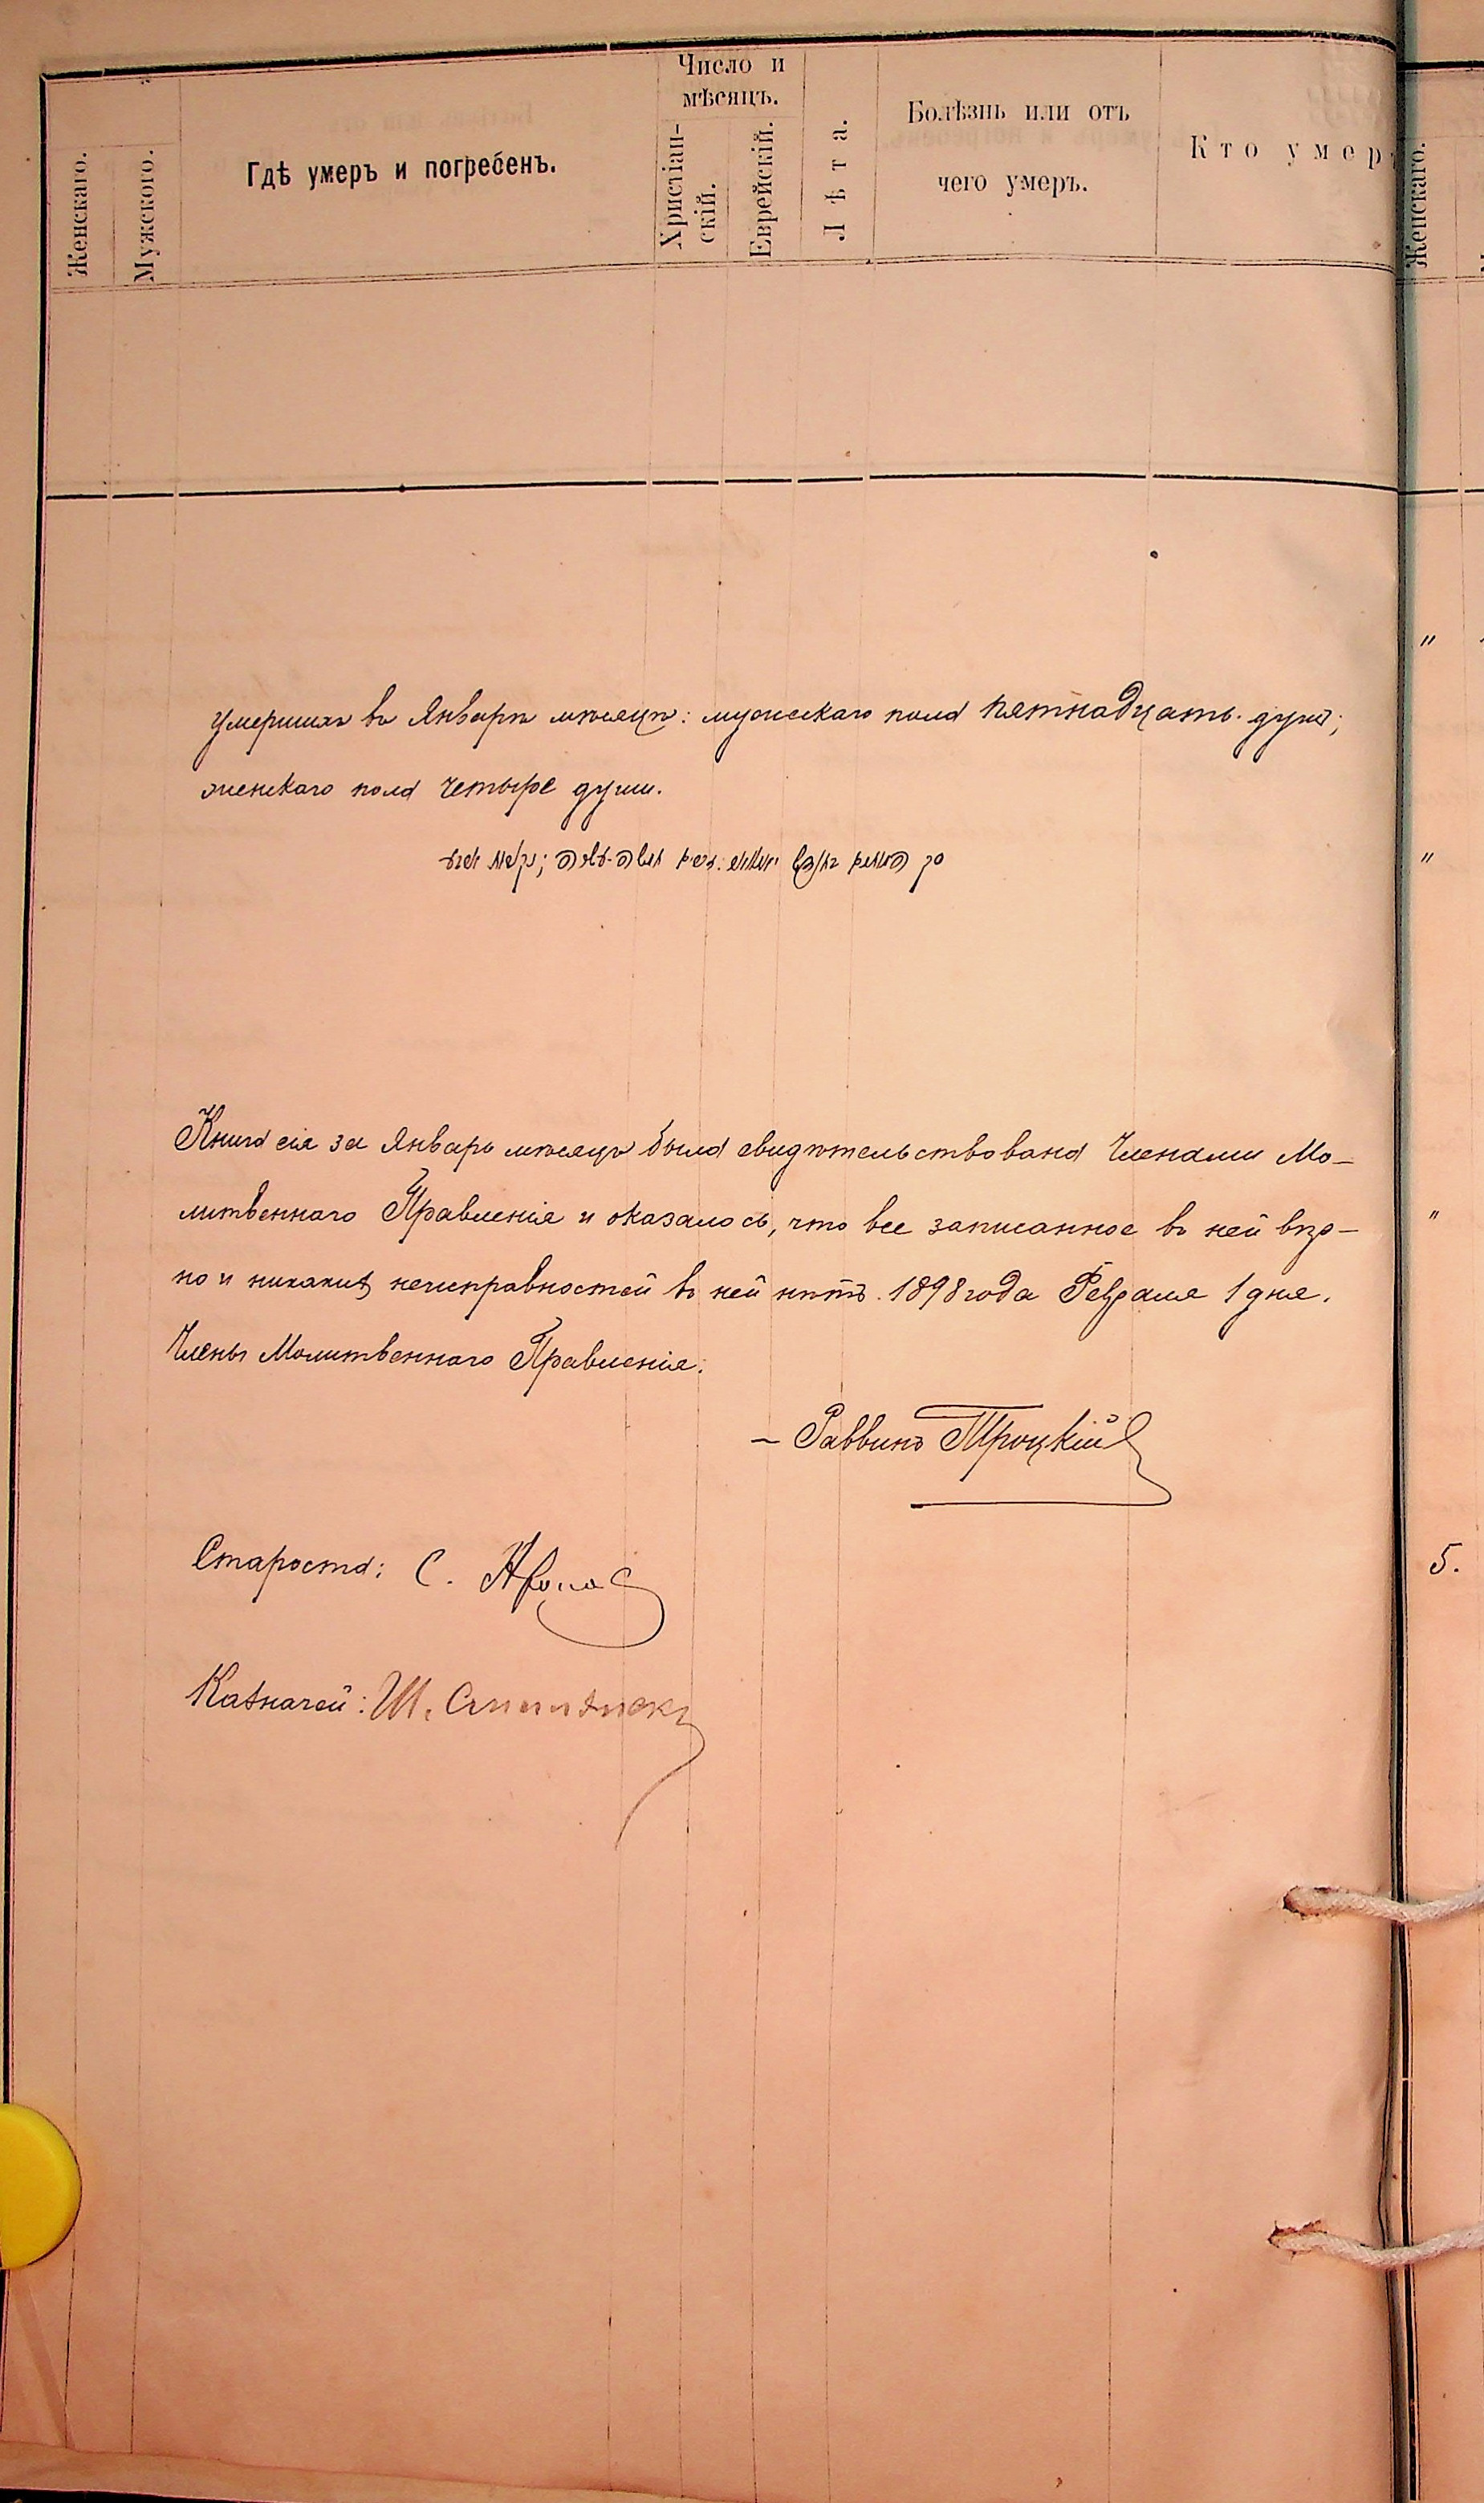 Женскаго.
Мужского.
Гдѣ умеръ и погребенъ.
Число и
мѣсяцъ.
Христіан-
скій.
Еврейскій.
Лѣта.
Болѣзнь или отъ
чего умеръ.
Кто умер
Женскаго.
"
Умершихъ въ Январѣ мѣсяцѣ: мужескаго пола пятнадцать душъ;
женскаго пола четыре души.
"
Книга сія за Январь мѣсяцъ была свидѣтельствована Членами Мо-
литвеннаго Правленія и оказалось, что все записанное въ ней вѣр-
"
но и никакихъ неисправностей въ ней нѣтъ. 1898 года Февраля 1 дня.
Члены Молитвеннаго Правленія:
- Раввинъ Троцкій
Староста: С.
5.
Казначей: Ш.